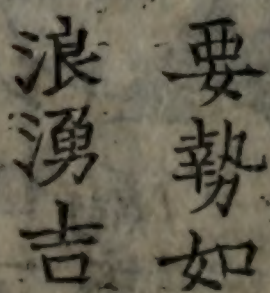 要勢如
浪湧吉